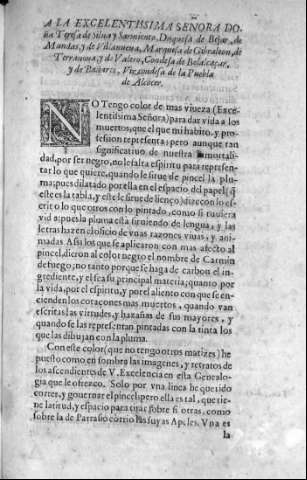 A LA EXCELENTISSIMA SEÑORA DO-
ña Teresa de Silua y Sarmiento, Duquesa de Bejar, de
Mandas, y de Villanueua, Marquesa de Gibraleon, de
Terranoua, y de Valero, Condesa de Belalcaçar,
y de Bañares, Vizcondesa de la Puebla
de Alcocer.
NO Tengo color de mas viueza (Exce-
lentissima Señora) para dar vida a los
muertos, que el que mi habito, y pro-
fesion representa; pero aunque tan
significatiuo de nuestra inmortali-
dad, por ser negro, no le falta espiritu para represen-
tar lo que quiere, quando le sirue de pincel la plu-
ma; pues dilatado por ella en el espacio del papel (q̃
este es la tabla, y este le sirue de lienço) dize con lo es-
crito lo que otros con lo pintado, como si tuuiera
vida: pues la pluma esta siruiendo de lengua, y las
letras hazen el oficio de vnas razones viuas, y ani-
madas. Assi los que se aplicaron con mas afecto al
pincel, dieron al color negro el nombre de Carmin
de fuego; no tanto porque se haga de carbon el in-
grediente, y el sea su principal materia; quanto por
la vida, por el espiritu, y por el aliento con que se en-
cienden los coraçones mas muertos, quando ven
escritas las virtudes, y hazañas de sus mayores, y
quando se las representan pintadas con la tinta los
que las dibujan con la pluma.
Con este color (que no tengo otros matizes) he
puesto como en sombra las imagenes, y retratos de
los ascendientes de V. Excelencia en esta Genealo-
gia que le ofrezco. Solo por vna linea he querido
correr, y gouernar el pincel; pero ella es tal, que tie-
ne latitud, y espacio para tirar sobre si otras, como
sobre la de Parrasio corrio las suyas Apeles. Vna es
la